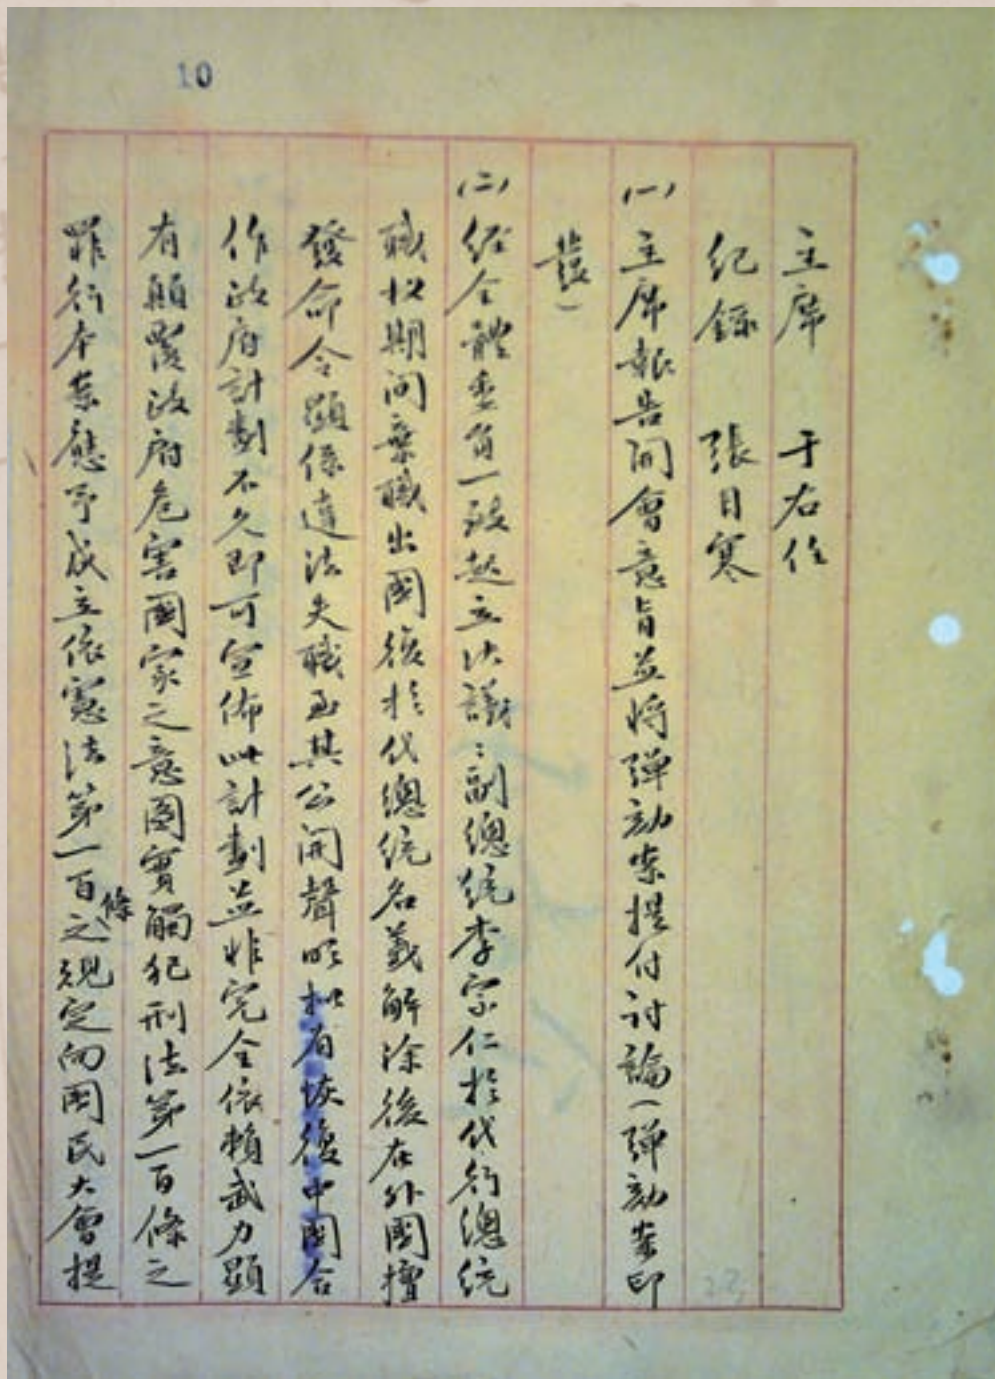 10
主席　于右任
紀錄　張目寒
(一)主席報告開會意旨並將彈劾案提付討論(彈劾案印
發)
(二)經全體委員一致起立決議:副總統李宗仁於代行總統
職權期間棄職出國後於代總統名義解除後在外國擅
發命令顯係違法失職至其公開聲明擬有恢復中國合
作政府計劃不久即可宣佈此計劃並非完全依賴武力顯
有顛覆政府危害國家之意圖實觸犯刑法第一百條之
罪行本案應予成立依憲法第一百條之規定向國民大會提